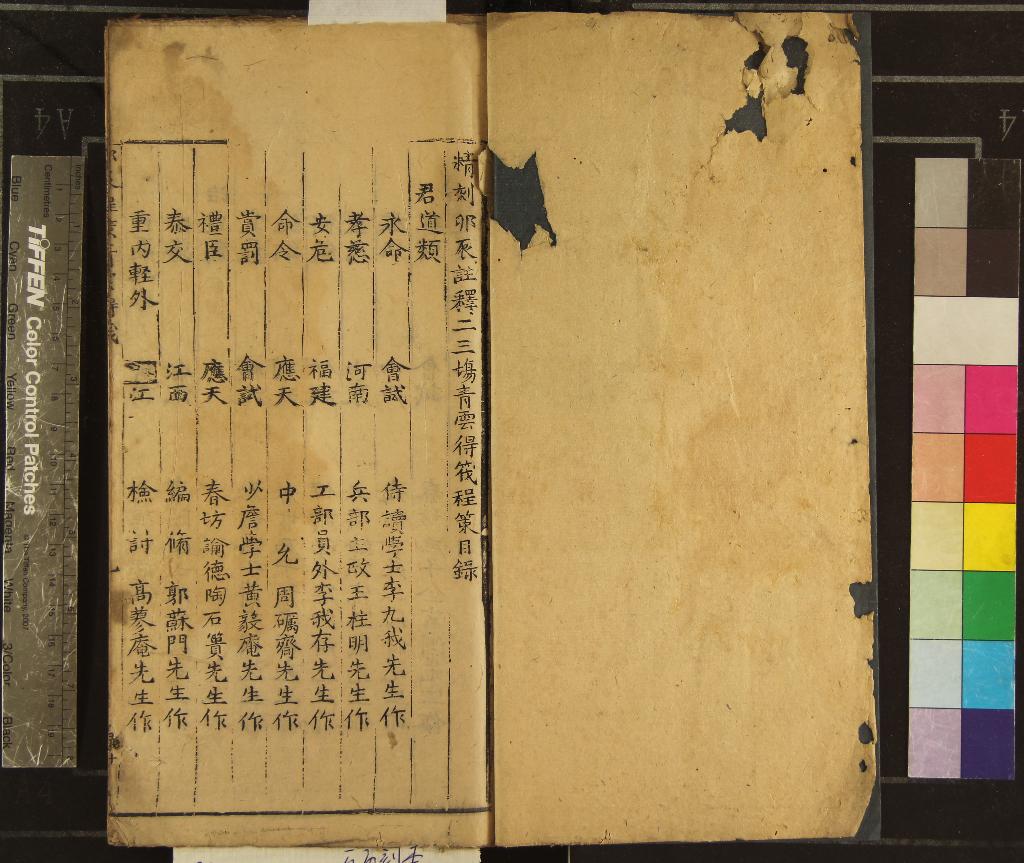 精刻卯辰註釋二三塲青雲得筏程策目錄
君道類
永命 會試 侍讀學士李九我先生作
孝慈 河南 兵部主政王桂明先生作
安危 福建 工部員外李我存先生作
命令 應天 中允周礪齋先生作
賞罰 會試 少詹學士黃毅庵先生作
禮臣 應天 春坊諭德陶石簣先生作
泰交 江西 編脩郭蘇門先生作
重内輕外 江 檢討高蓼庵先生作
A4
A4
A4
TIFFEN Color Control Patches
© The Tiffen Company, 2007
Centimetres
Inches
Blue
Cyan
Green
Yellow
Red
Magenta
White
3/Color
Black